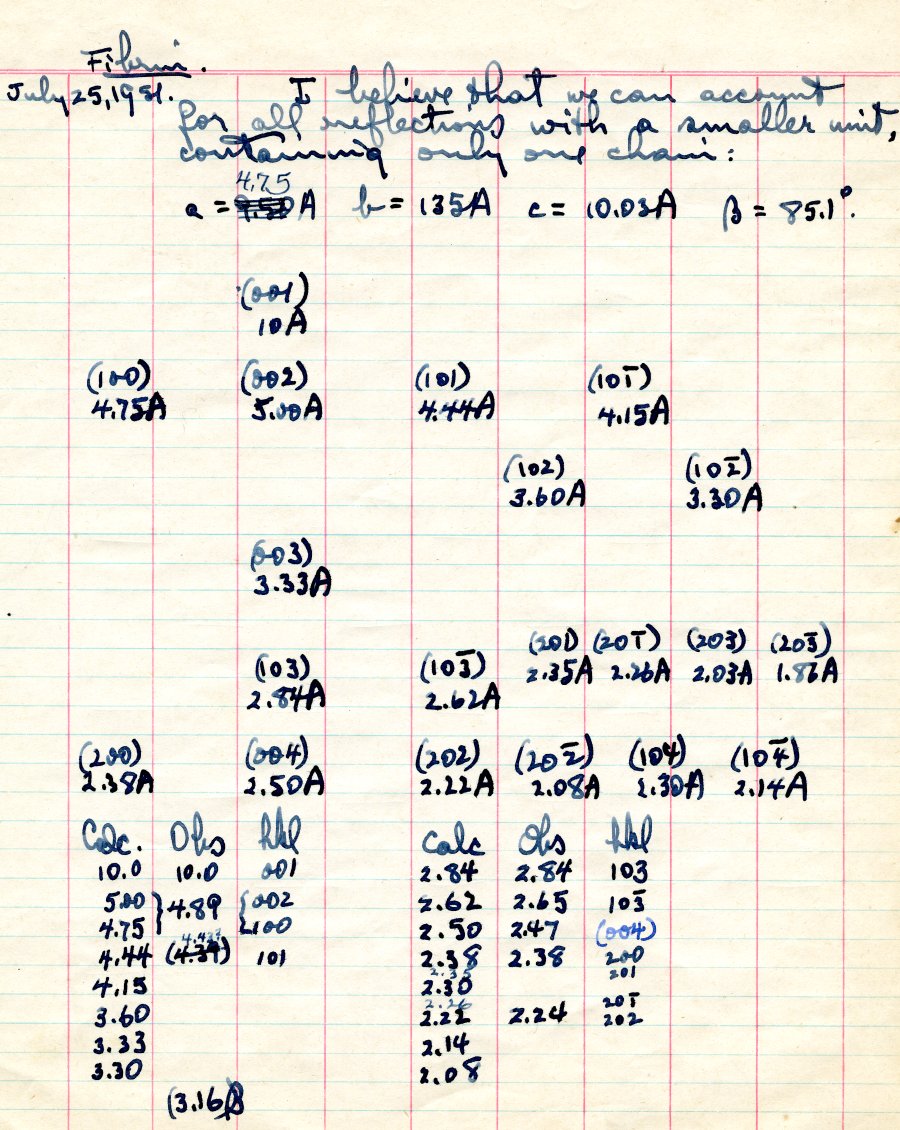 Fibrin.
July 25, 1951. I believe that we can account
for all reflections with a smaller unit,
containing only one chain:
4.75
a = 9.50 A b = 135A c = 10.03A β = 85.1°.
(001)
10A
(100) (002) (101) (101̄)
4.75A 5.00A 4.44A 4.15A
(102) (102̄)
3.60A 3.30A
(003)
3.33A
(201) (201̄) (203) (203̄)
2.35A 2.26A 2.03A 1.86A
(103) (103̄)
2.84A 2.62A
(200) (004) (202) (202̄) (104) (104̄)
2.38A 2.50A 2.22A 2.08A 2.30A 2.14A
Calc. Obs hkl Calc Obs hkl
10.0 10.0 001 2.84 2.84 103
5.00 } 4.89 { 002 2.62 2.65 103̄
4.75 100 2.50 2.47 (004)
4.44 (4.34) 101 2.38 2.38 200
2.35 201
4.15 2.30
2.26 201̄
3.60 2.22 2.24 202
3.33 2.14
3.30 2.08
(3.16)